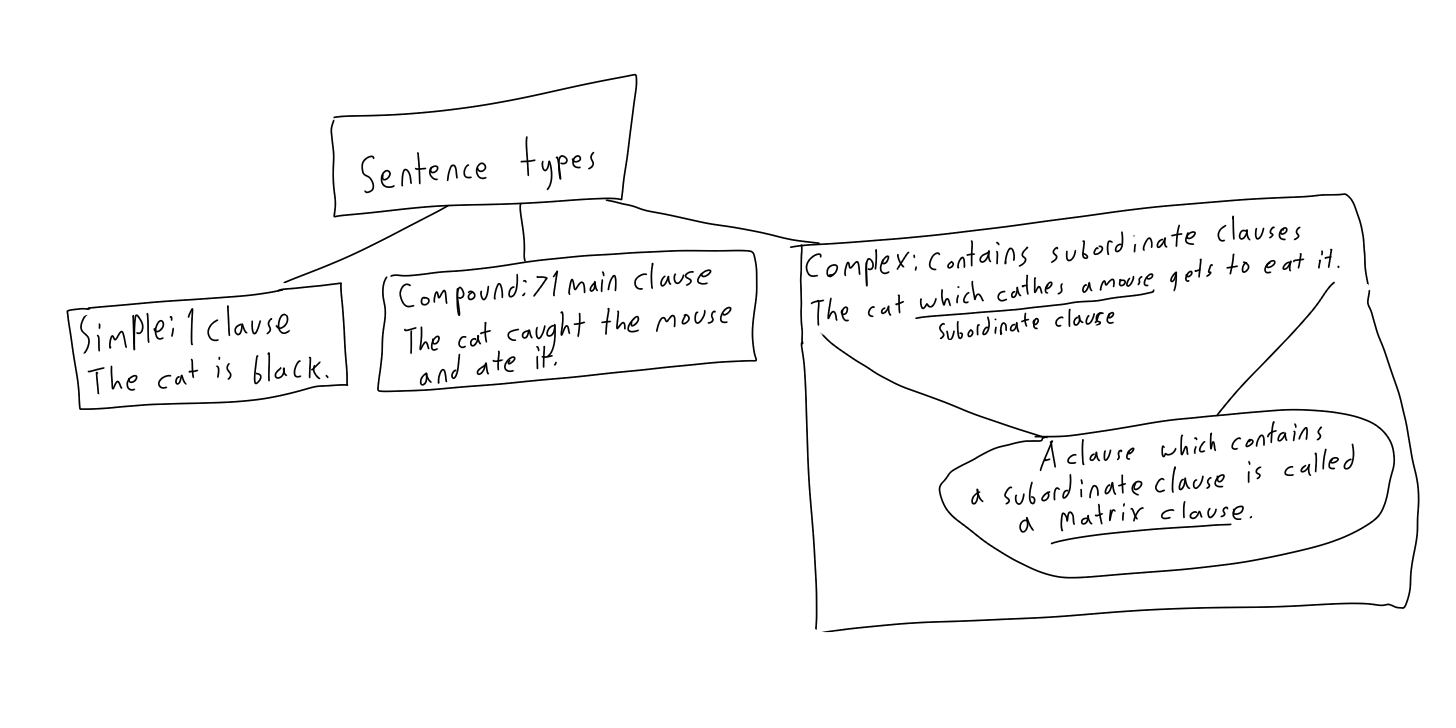 Sentence types
Simple: 1 clause
The cat is black.
Compound: >1 main clause
The cat caught the mouse
and ate it.
Complex: contains subordinate clauses
The cat which cathes a mouse gets to eat it.
subordinate clause
A clause which contains
a subordinate clause is called
a matrix clause.